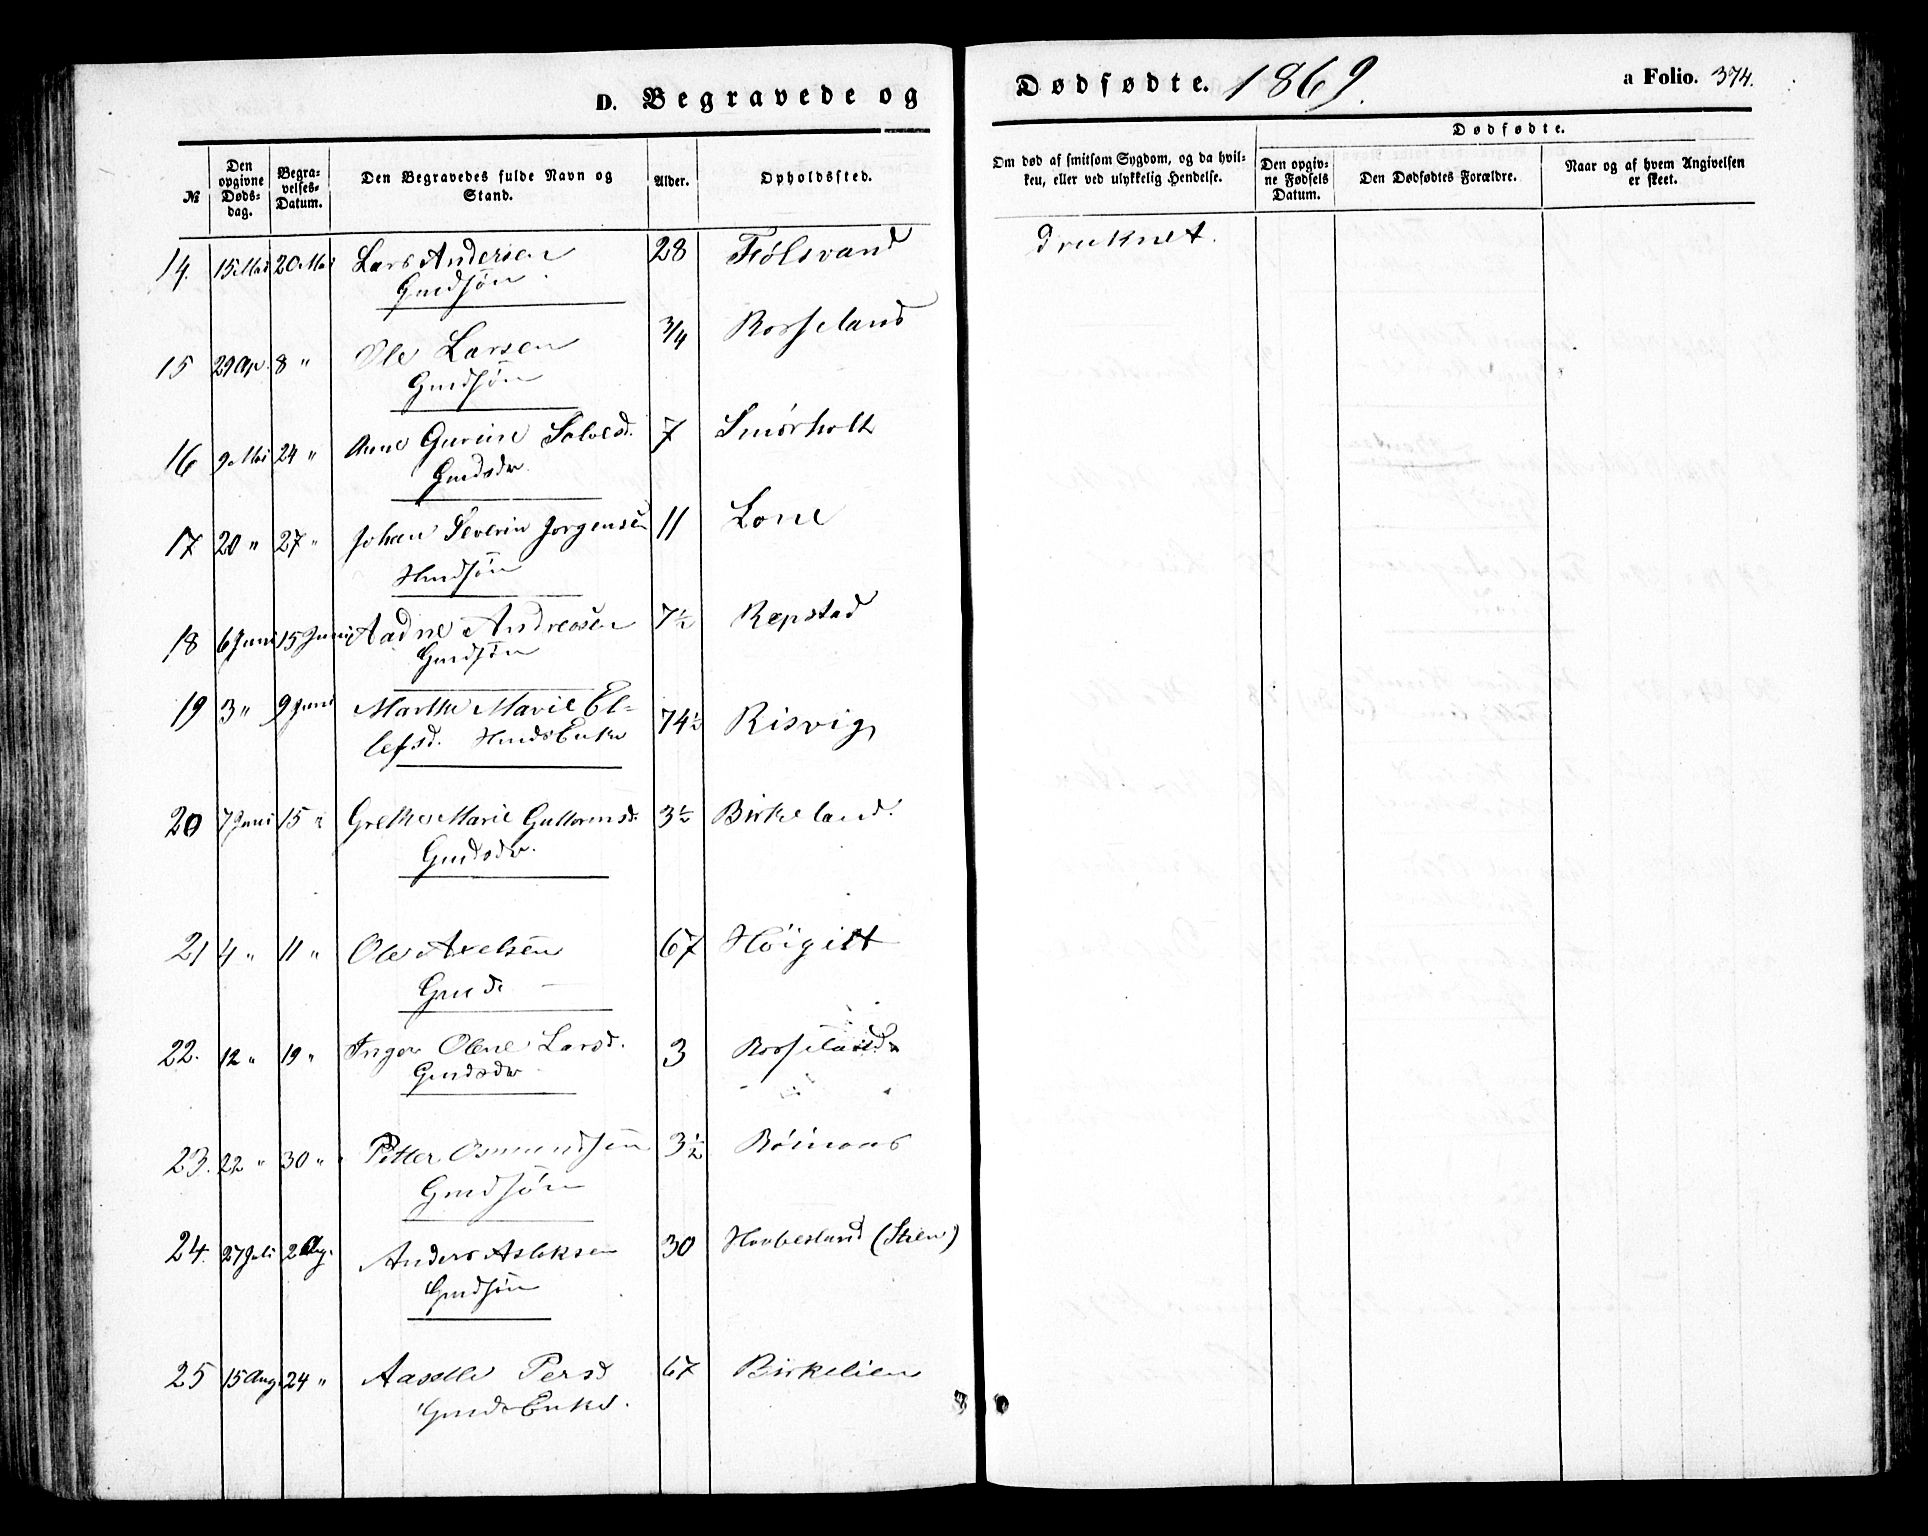 D. Begravede og
Dødfødte. 1869.
a Folio. 374.
№
Den opgivne Dødsdag.
Begravelses-Datum.
Den Begravedes fulde Navn og Stand.
Alder.
Opholdssted.
Om død af smitsom Sygdom, og da hvilken, eller ved ulykkelig Hendelse.
Dødfødte.
Den opgivne Fødsels Datum.
Den Dødfødtes Forældre.
Naar og af hvem Angivelsen er skeet.
14. 15 Mai 20 Mai Lars Andersen 28 Fölsvand druknet.
Gmdsön.
15 29 Ap. 8 " Ole Larsen 3/4 Rosseland
Gmdsön
16 9 Mai 24 " Anne Gurine Salvesd. 7 Smörholt
Gmdsdr.
17 20 " 27 " Johan Severin Jorgensen 11 Lone
Hmdsön
18 6 Juni 15 Juni Aadne Andreasen 7½ Repstad
Gmdsön
19 3 " 9 Juni Marthe Marie El- 74½ Risvig
lefsd. HmdsEnke
20 7 Juni 15 " Grethe Marie Guttormsd. 3½ Birkeland.
Gmdsdr.
21 4 " 11 " Ole Axelsen 67 Höigilt
Gmd.
22. 12 " 19 " Inger Olene Larsd. 3 Rosseland
Gmdsdr
23. 22 " 30 " Petter Osmundsen 3½ Röinaas
Gmdsön
24. 27 Juli 2 Aug. Anders Aslaksen 30 Haabesland (Stien)
Gmdsön
25 15 Aug. 24 " Aaselle Persd 67 Birkelien
GmdsEnke.